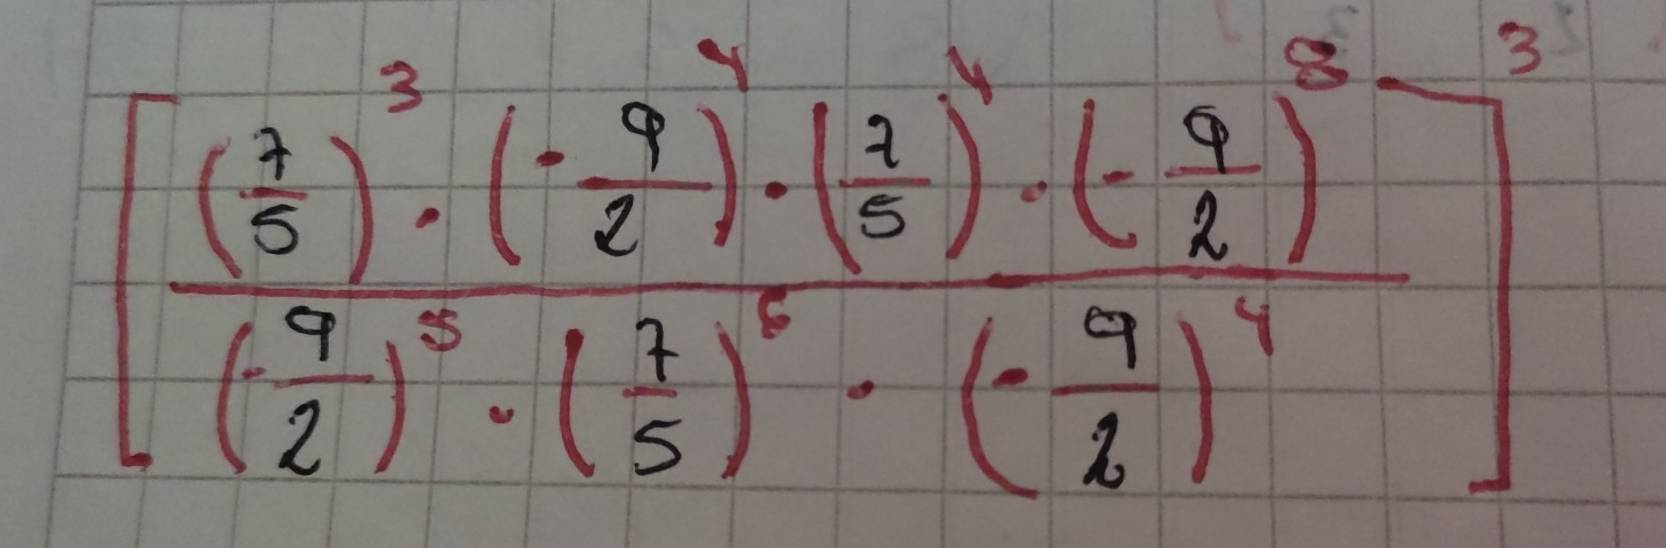 [(7/5)^3 · (-9/2)^4 · (7/5)^4 · (-9/2)^8]^3
(-9/2)^5 · (7/5)^6 · (-9/2)^4